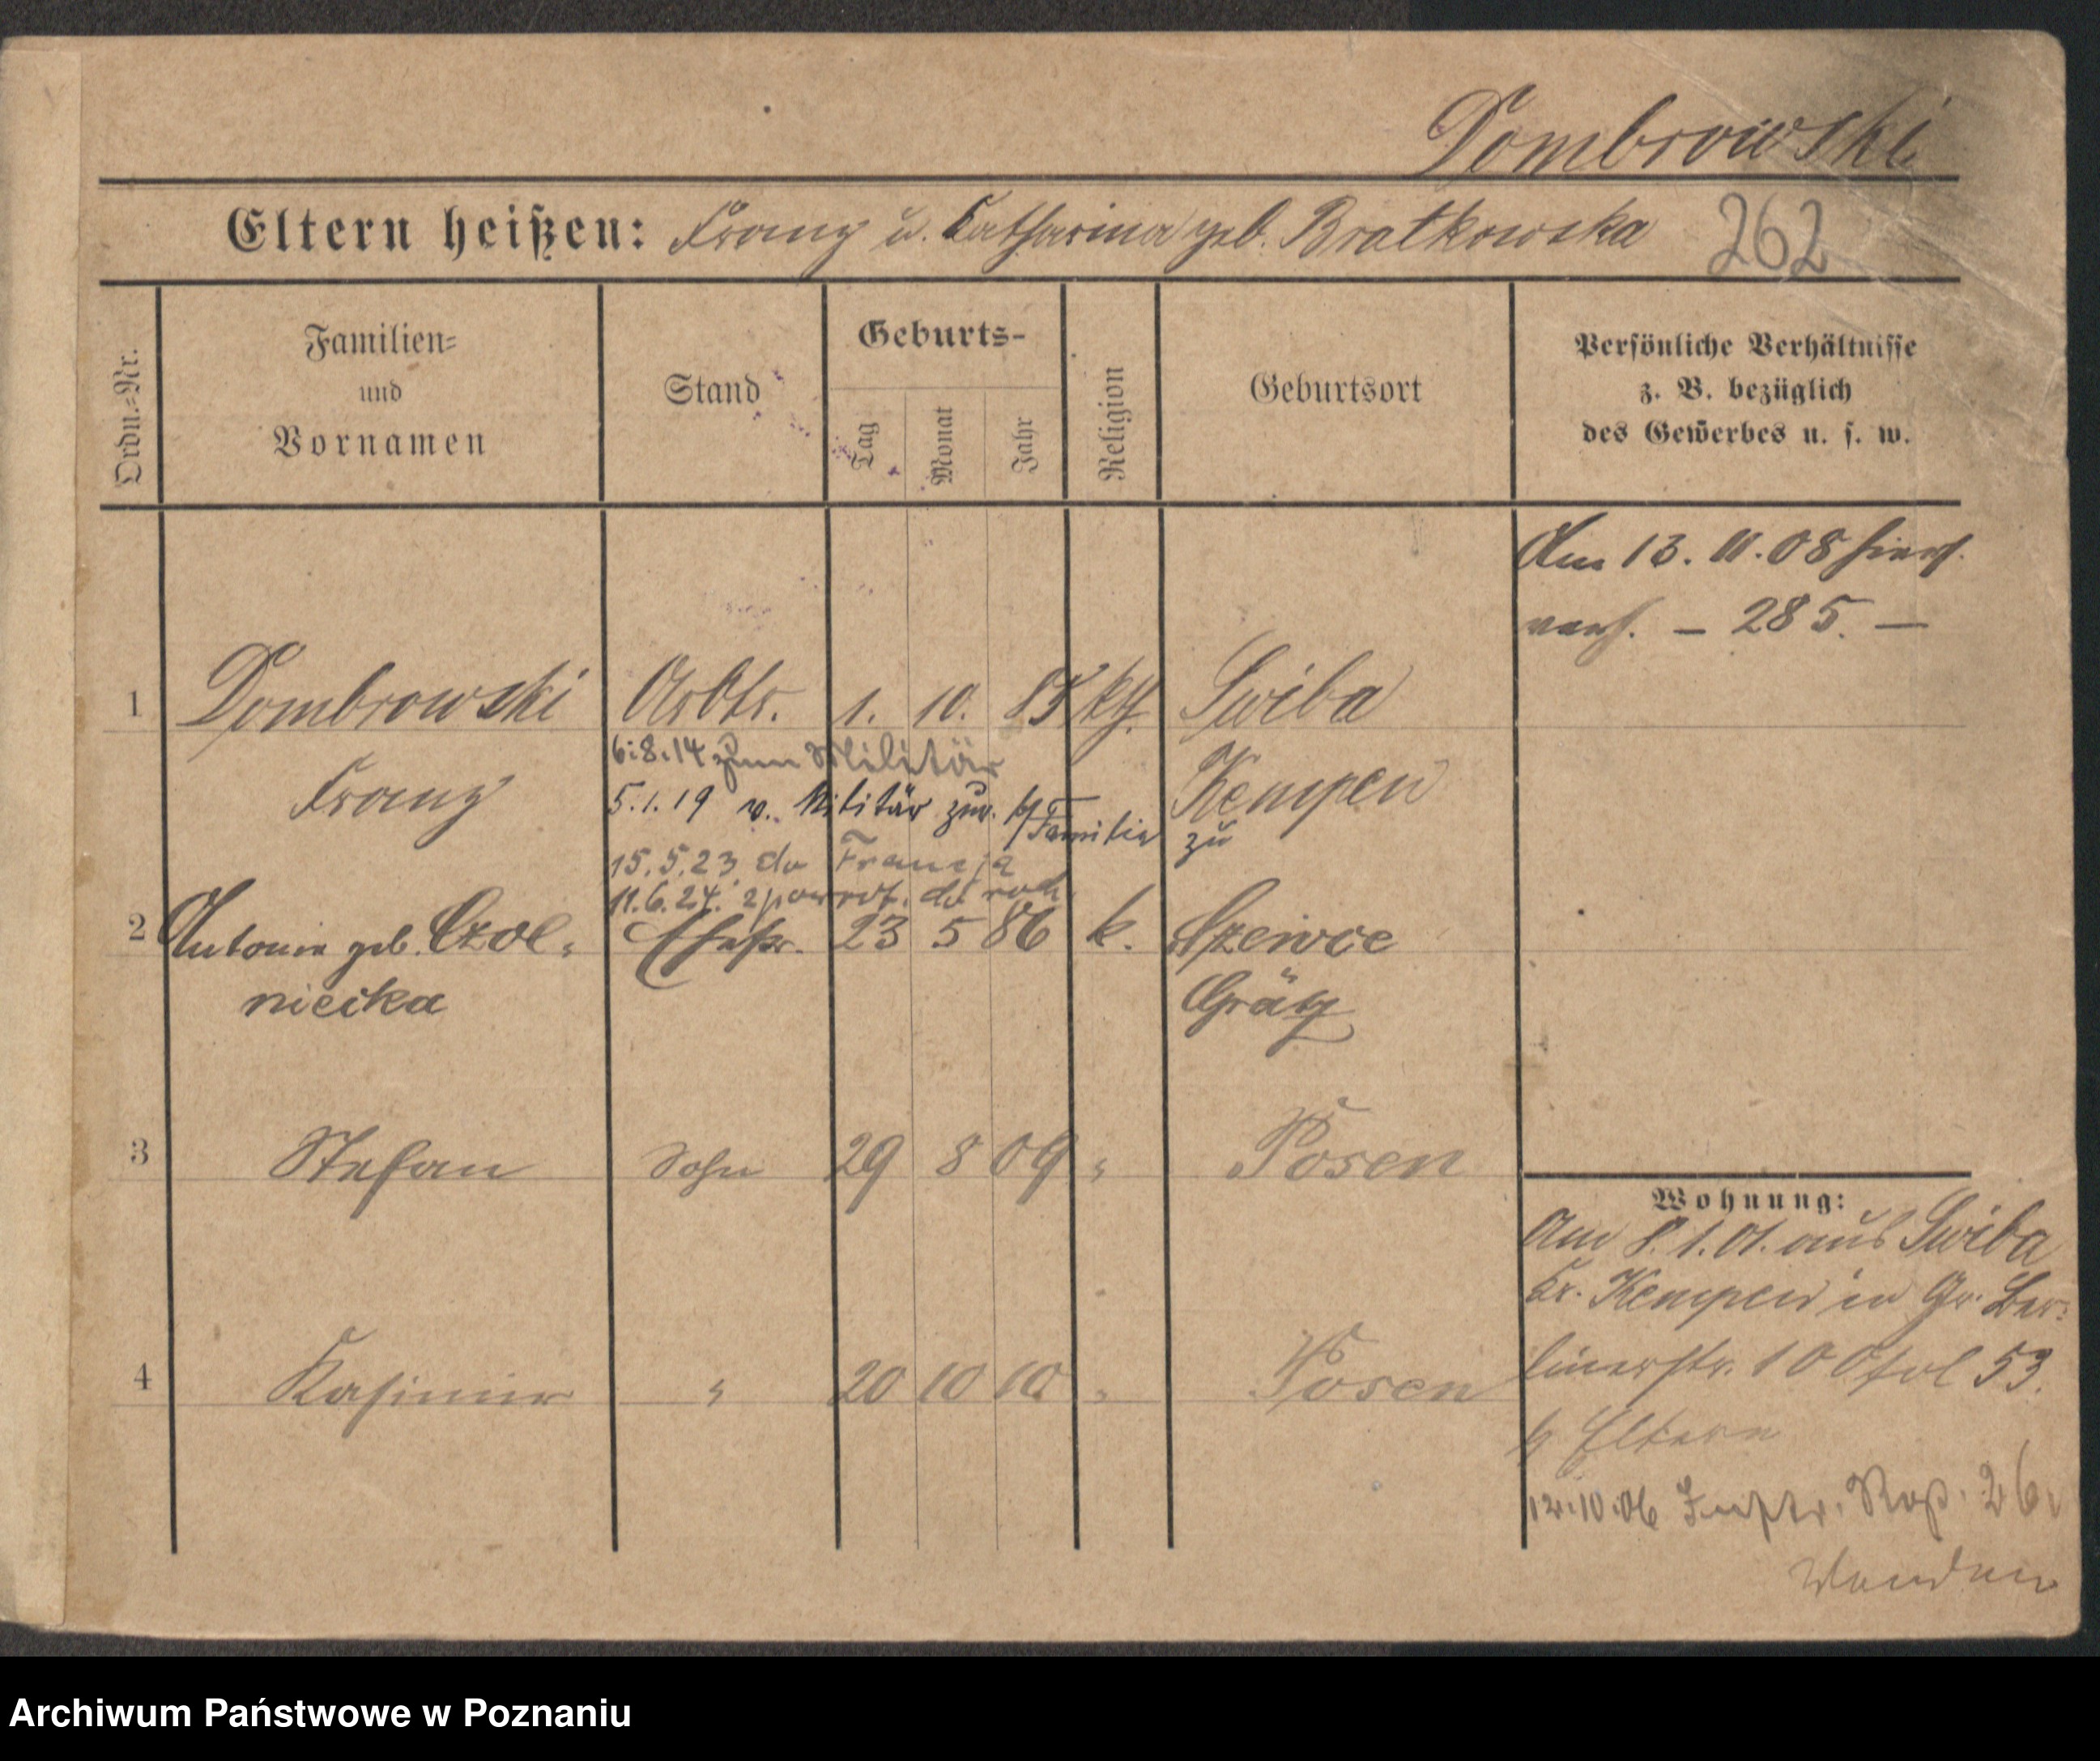 Dombrowski
Eltern heißen: Franz u. Catharina geb. Bratkowska 262
Ordn.=Nr.
Familien=
und
Vornamen
Stand
Geburts-
Tag
Monat
Jahr
Religion
Geburtsort
Persönliche Verhältnisse
z. B. bezüglich
des Gewerbes u. s. w.
Am 13. 11. 08 hier
— 285. —
1 Dombrowski Arbtr. 1. 10. 85 kth. Swiba
6.8.14 zum Militär
Franz
Kempen
5.1.19 v. Militär zur. b/Familie
zu
15.5.23 do Francja
11.6.24. zpowrot. do
2 Antonie geb. Czol= Ehefr. 23 5 86 k. Szewce
niecka
Grätz
3 Stefan Sohn 29 8 09 " Posen
Wohnung:
Am 8.1.01. aus Swiba
Kr. Kempen in Gr. Ber=
linerstr. 100 fol 53.
4 Kasimir " 20 10 10 " Posen
b/ Eltern
12.10.06 26.
Wenden
Archiwum Państwowe w Poznaniu